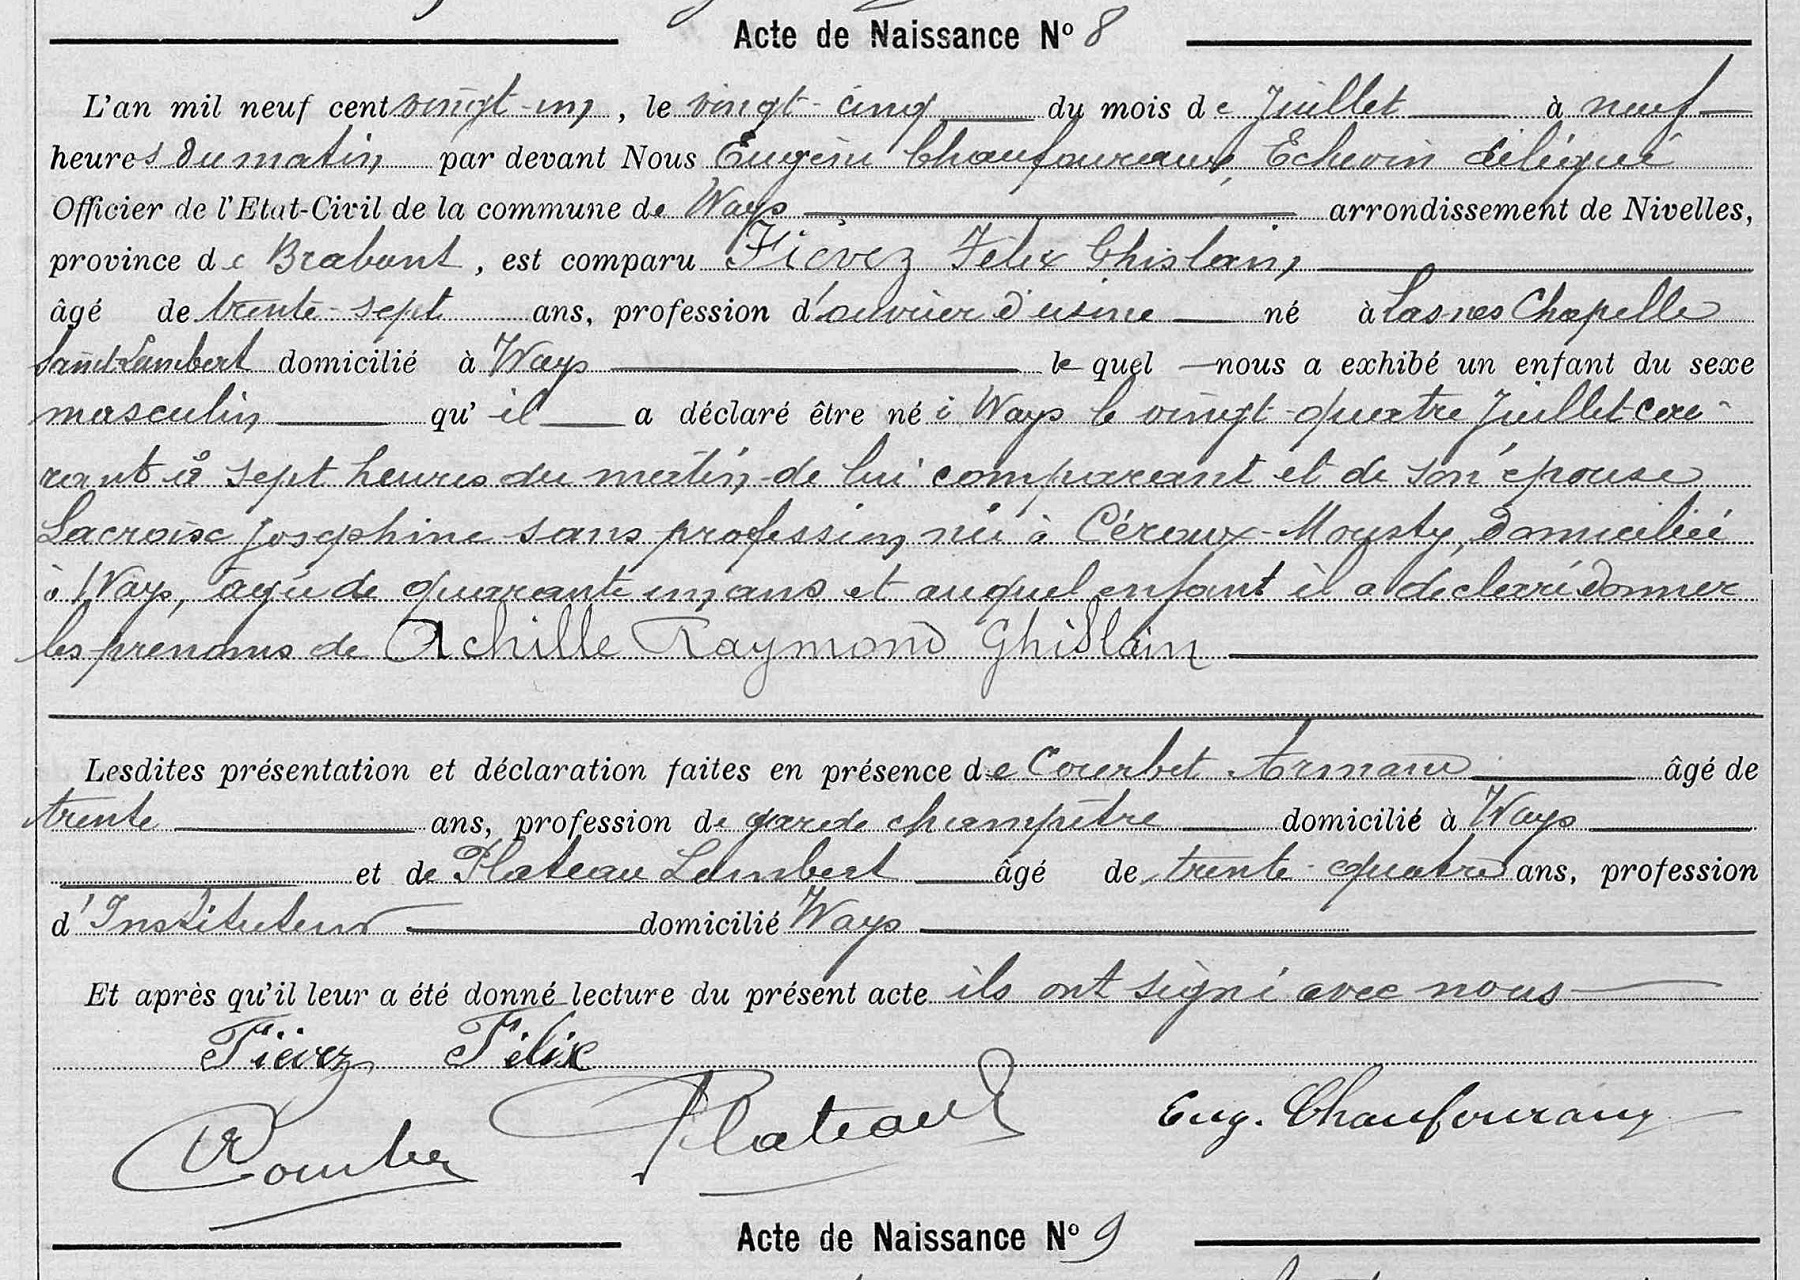 Acte de Naissance Nº 8
L'an mil neuf cent vingt-un, le vingt-cinq du mois de Juillet à neuf
heures du matin par devant Nous Eugène Chaufoureaux, Echevin délégué
Officier de l'Etat-Civil de la commune de Ways arrondissement de Nivelles,
province de Brabant, est comparu Fiévez Félix Ghislain,
âgé de trente-sept ans, profession d'ouvrier d'usine né à Lasnes Chapelle
Saint Lambert domicilié à Ways le quel nous a exhibé un enfant du sexe
masculin qu'il a déclaré être né à Ways le vingt-quatre Juillet cou-
rant à sept heures du matin, de lui comparant et de son épouse
Lacroix Joséphine sans profession, née à Céroux-Mousty, domiciliée
à Ways, âgée de quarante un ans et auquel enfant il a déclaré donner
les prénoms de Achille Raymond Ghislain
Lesdites présentation et déclaration faites en présence de Courbet Armand âgé de
trente ans, profession de garde champêtre domicilié à Ways
et de Plateau Lambert âgé de trente-quatre ans, profession
d'Instituteur domicilié Ways
Et après qu'il leur a été donné lecture du présent acte ils ont signé avec nous
Fiévez Félix
Plateau Eug. Chaufoureaux
Acte de Naissance Nº 9